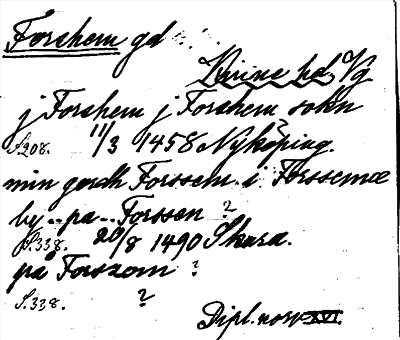 Forshem gd
Kinne hd, Vg
j Forshem j Forshem sokn
S. 208. 11/3 1458 Nyköping.
min gardh Forssem i Forssemæ
by .. pa .. Forssen ?
S. 338. 20/8 1490 Skara.
pa Forssom ?
S. 338. ?
Dipl. norv XVI.